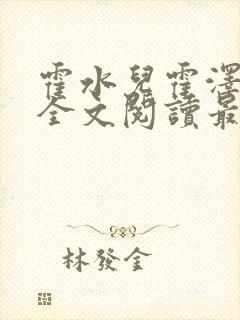 霍水兒霍澤
全文閱讀最
林發金